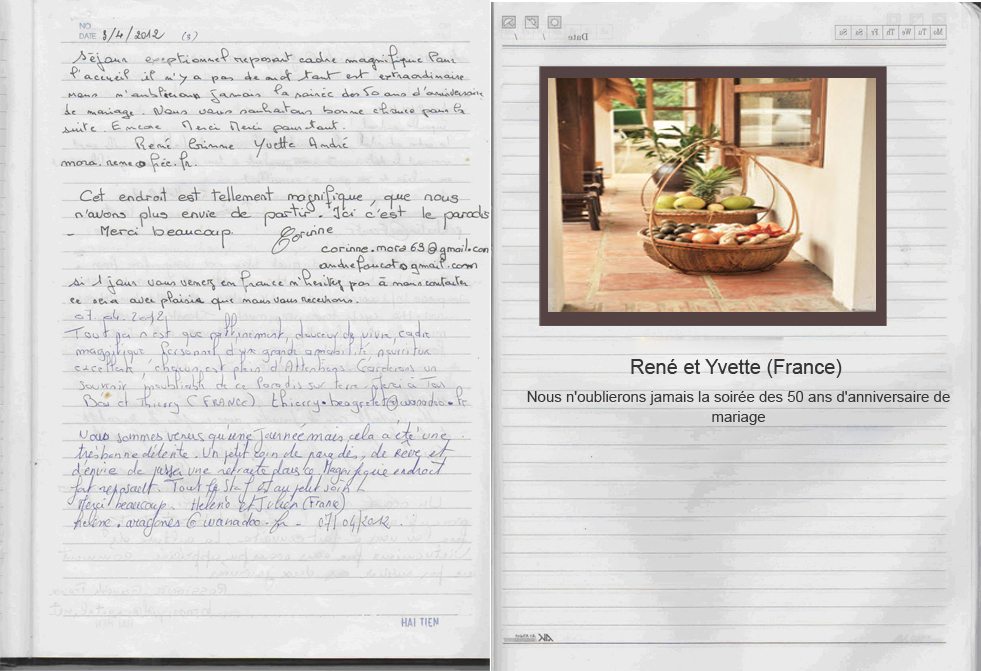 NO
DATE 3/4/2012 (3)
Séjour exceptionnel reposant cadre magnifique Pour
l'accueil il n'y a pas de mot tout est extraordinaire
nous n'oublierons jamais la soirée des 50 ans d'anniversaire
de mariage. Nous vous souhaitons bonne chance pour la
suite. Encore Merci Merci pour tout.
René Corinne Yvette André
Cet endroit est tellement magnifique, que nous
n'avons plus envie de partir. Ici c'est le paradis
- Merci beaucoup. Corinne
corinne.mora63@gmail.com
andrefoucot@gmail.com
si 1 jour vous venez en France n'hésitez pas à nous contacter
ce sera avec plaisir que nous vous recevrons.
07.04.2012
Tout ici n'est que raffinement, douceur de vivre, cadre
magnifique, Personnel d'une grande amabilité, nourriture
excellente, chacun est plein d'Attentions. Garderons un
souvenir inoubliable de ce Paradis sur terre. Merci à Tous
et Thierry (FRANCE)
Nous sommes venus qu'une Journée mais cela a été une
très bonne détente. Un petit coin de paradis, de Rêve et
d'envie de passer une retraite dans ce Magnifique endroit
fort reposant. Tout le staf est au petit soin !
Merci beaucoup. Hélène et Julien (France)
helene.aragones@wanadoo.fr - 07/04/2012.
HAI TIEN
Date / /
Mo Tu We Th Fr Sa Su
René et Yvette (France)
Nous n'oublierons jamais la soirée des 50 ans d'anniversaire de
mariage